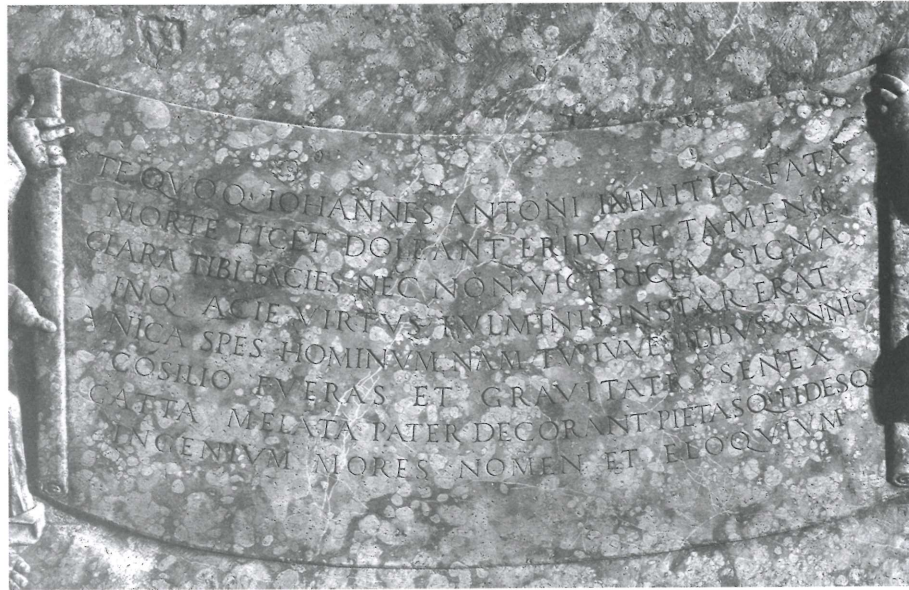 TE QVOQ· IOHANNES ANTONI IMMITIA FATA
MORTE LICET DOLEANT ERIPVERE TAMEN
CLARA TIBI FACIES NEC NON VICTRICIA SIGNA
INQ· ACIE VIRTVS FVLMINIS INSTAR ERAT
VNICA SPES HOMINVM NAM TV IVVENILIBVS ANNIS
COSILIO FVERAS ET GRAVITATE SENEX
GATTA MELATA PATER DECORANT PIETASQ· FIDESQ
INGENIVM MORES NOMEN ET ELOQVIVM